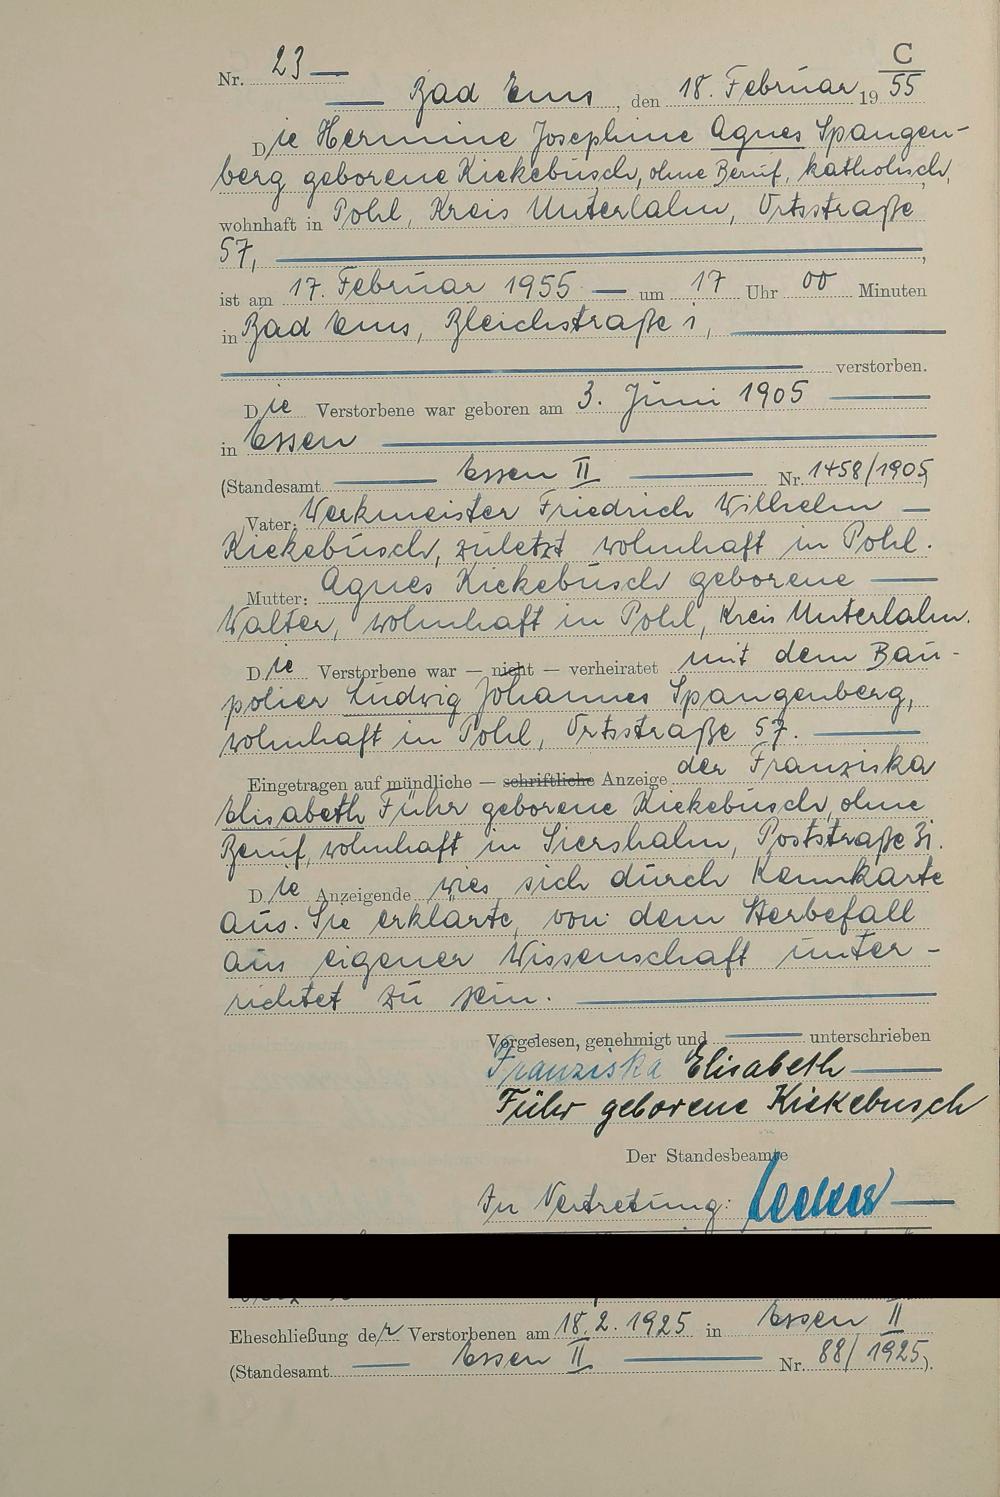 C
Nr. 23
Bad Ems, den 18. Februar 1955
Die Hermine Josephine Agnes Spangen-
berg geborene Kiekebusch, ohne Beruf, katholisch,
wohnhaft in Pohl, Kreis Unterlahn, Ortsstraße
57,
ist am 17. Februar 1955 um 17 Uhr 00 Minuten
in Bad Ems, Bleichstraße 1,
verstorben.
Die Verstorbene war geboren am 3. Juni 1905
in Essen
(Standesamt Essen II Nr. 1458/1905
Vater: Werkmeister Friedrich Wilhelm
Kiekebusch, zuletzt wohnhaft in Pohl.
Mutter: Agnes Kiekebusch geborene
Walter, wohnhaft in Pohl, Kreis Unterlahn.
Die Verstorbene war — nicht — verheiratet mit dem Bau-
polier Ludwig Johannes Spangenberg,
wohnhaft in Pohl, Ortsstraße 57.
Eingetragen auf mündliche — schriftliche Anzeige der Franziska
Elisabeth Führ geborene Kiekebusch, ohne
Beruf, wohnhaft in Siershahn, Poststraße 31.
Die Anzeigende wies sich durch Kennkarte
aus. Sie erklärte, von dem Sterbefall
aus eigener Wissenschaft unter-
richtet zu sein.
Vorgelesen, genehmigt und unterschrieben
Franziska Elisabeth
Führ geborene Kiekebusch
Der Standesbeamte
In Vertretung:
Eheschließung der Verstorbenen am 18.2.1925 in Essen II
(Standesamt Essen II Nr. 88/1925).